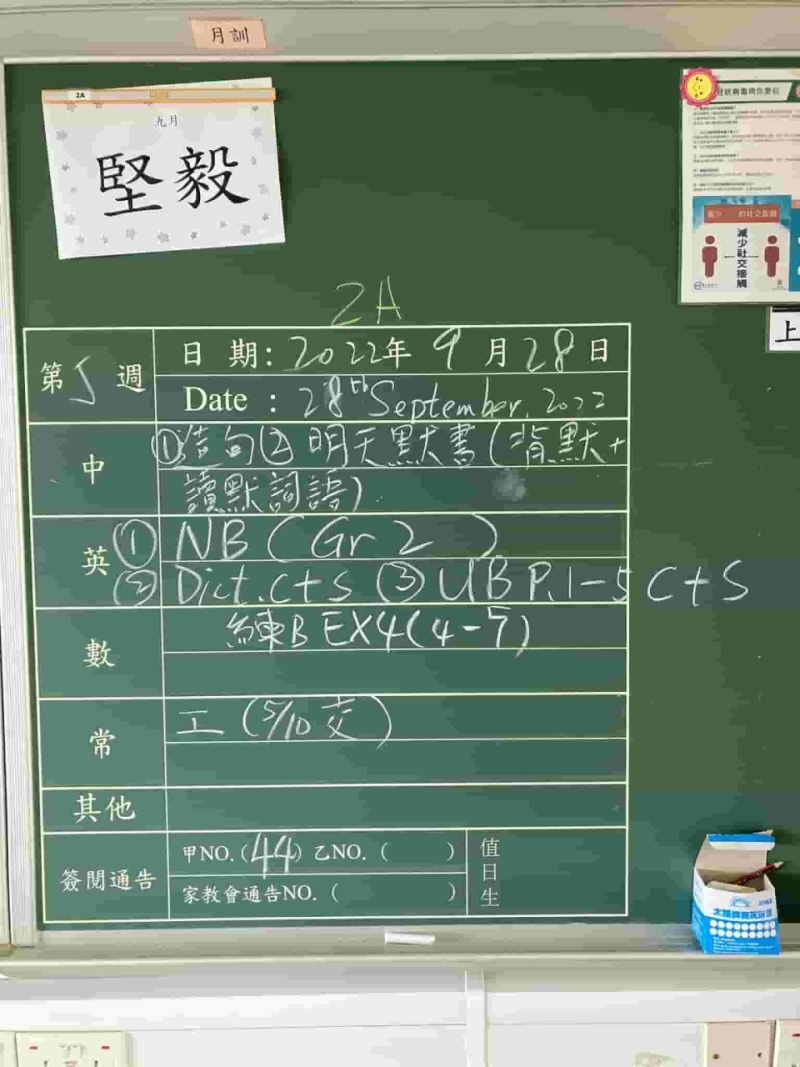 月訓
2A
九月
堅毅
減少社交接觸
上
2A
第5週
日期:2022年9月28日
Date : 28th September, 2022
中
①造句② 明天默書(背默+
讀默詞語)
英
① NB (Gr 2)
② Dict. C+S ③ UB P.1-5 C+S
數
練B EX4(4-7)
常
工 (5/10 交)
其他
簽閱通告
甲NO.(44) 乙NO. ( )
家教會通告NO. ( )
值日生